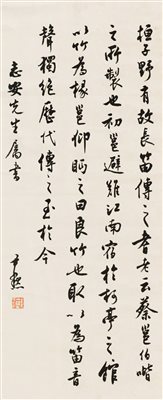 桓子野有故長笛傳之耆老云蔡邕伯喈
之所製也初邕避難江南宿於柯亭之館
以竹為椽邕仰眄之曰良竹也取以為笛音
聲獨絕歷代傳之至於今
志安先生屬書
尹默